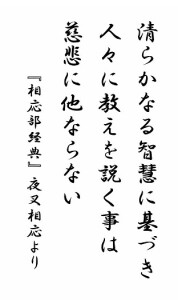 清らかなる智慧に基づき
人々に教えを説く事は
慈悲に他ならない
『相応部経典』夜叉相応より